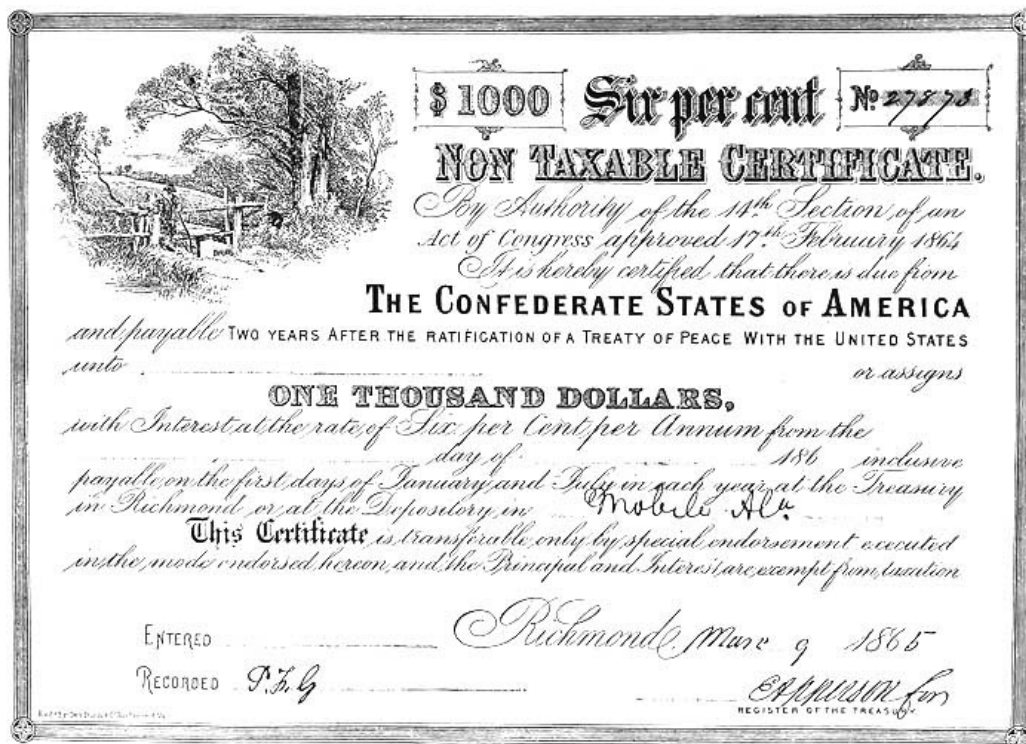 $ 1000 Six per cent No 27873
NON TAXABLE CERTIFICATE.
By Authority of the 14th Section of an
Act of Congress approved 17th February 1864
It is hereby certified that there is due from
THE CONFEDERATE STATES OF AMERICA
and payable TWO YEARS AFTER THE RATIFICATION OF A TREATY OF PEACE WITH THE UNITED STATES
unto or assigns
ONE THOUSAND DOLLARS,
with Interest at the rate of Six per Cent per Annum from the
day of 186 inclusive
payable on the first days of January and July in each year at the Treasury
in Richmond or at the Depository in Mobile Ala
This Certificate is transferable only by special endorsement executed
in the mode endorsed hereon and the Principal and Interest are exempt from taxation
ENTERED Richmond Mar 9 1865
RECORDED
E Apperson for
REGISTER OF THE TREASURY